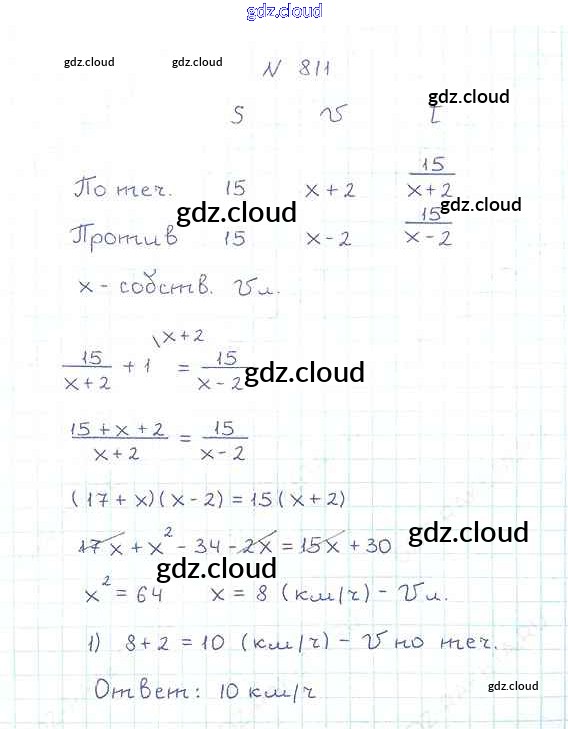 gdz.cloud
gdz.cloud gdz.cloud
N 811
gdz.cloud
S V t
По теч. 15 x+2 15/(x+2)
gdz.cloud gdz.cloud
Против 15 x-2 15/(x-2)
x - собств. Vл.
15/(x+2) + 1 \x+2 = 15/(x-2)
gdz.cloud
(15+x+2)/(x+2) = 15/(x-2)
(17+x)(x-2)=15(x+2)
17x+x²-34-2x=15x+30
gdz.cloud
gdz.cloud
x²=64 x=8 (км/ч) - Vл.
1) 8+2=10 (км/ч) - V по теч.
Ответ: 10 км/ч
gdz.cloud